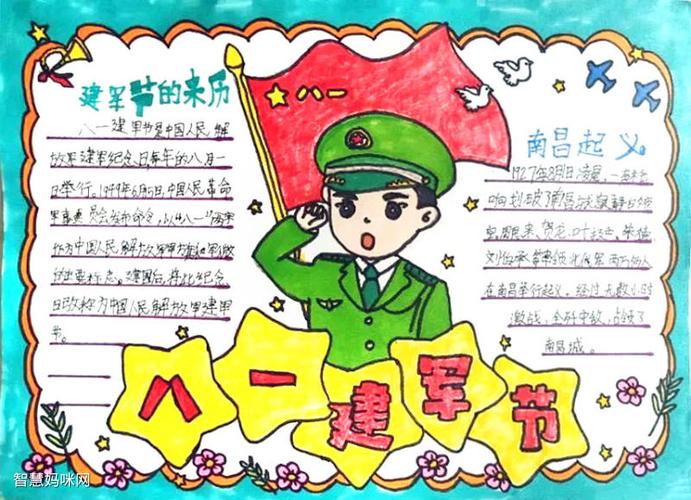 建军节的来历
八一建军节是中国人民解
放军建军纪念日,每年的八月一
日举行。1949年6月15日,中国人民革命
军事委员会发布命令,以"八一"两字
作为中国人民解放军军旗和军徽
的主要标志。建国后,将此纪念
日改称为中国人民解放军建军
节。
八一
南昌起义
1927年8月1日凌晨,一声枪
响划破南昌城
空,周恩来、贺龙、叶挺、朱德
刘伯承等率领北伐军两万多人
在南昌举行起义。经过无数小时
激战,全歼守敌,占领了
南昌城。
八一建军节
智慧妈咪网